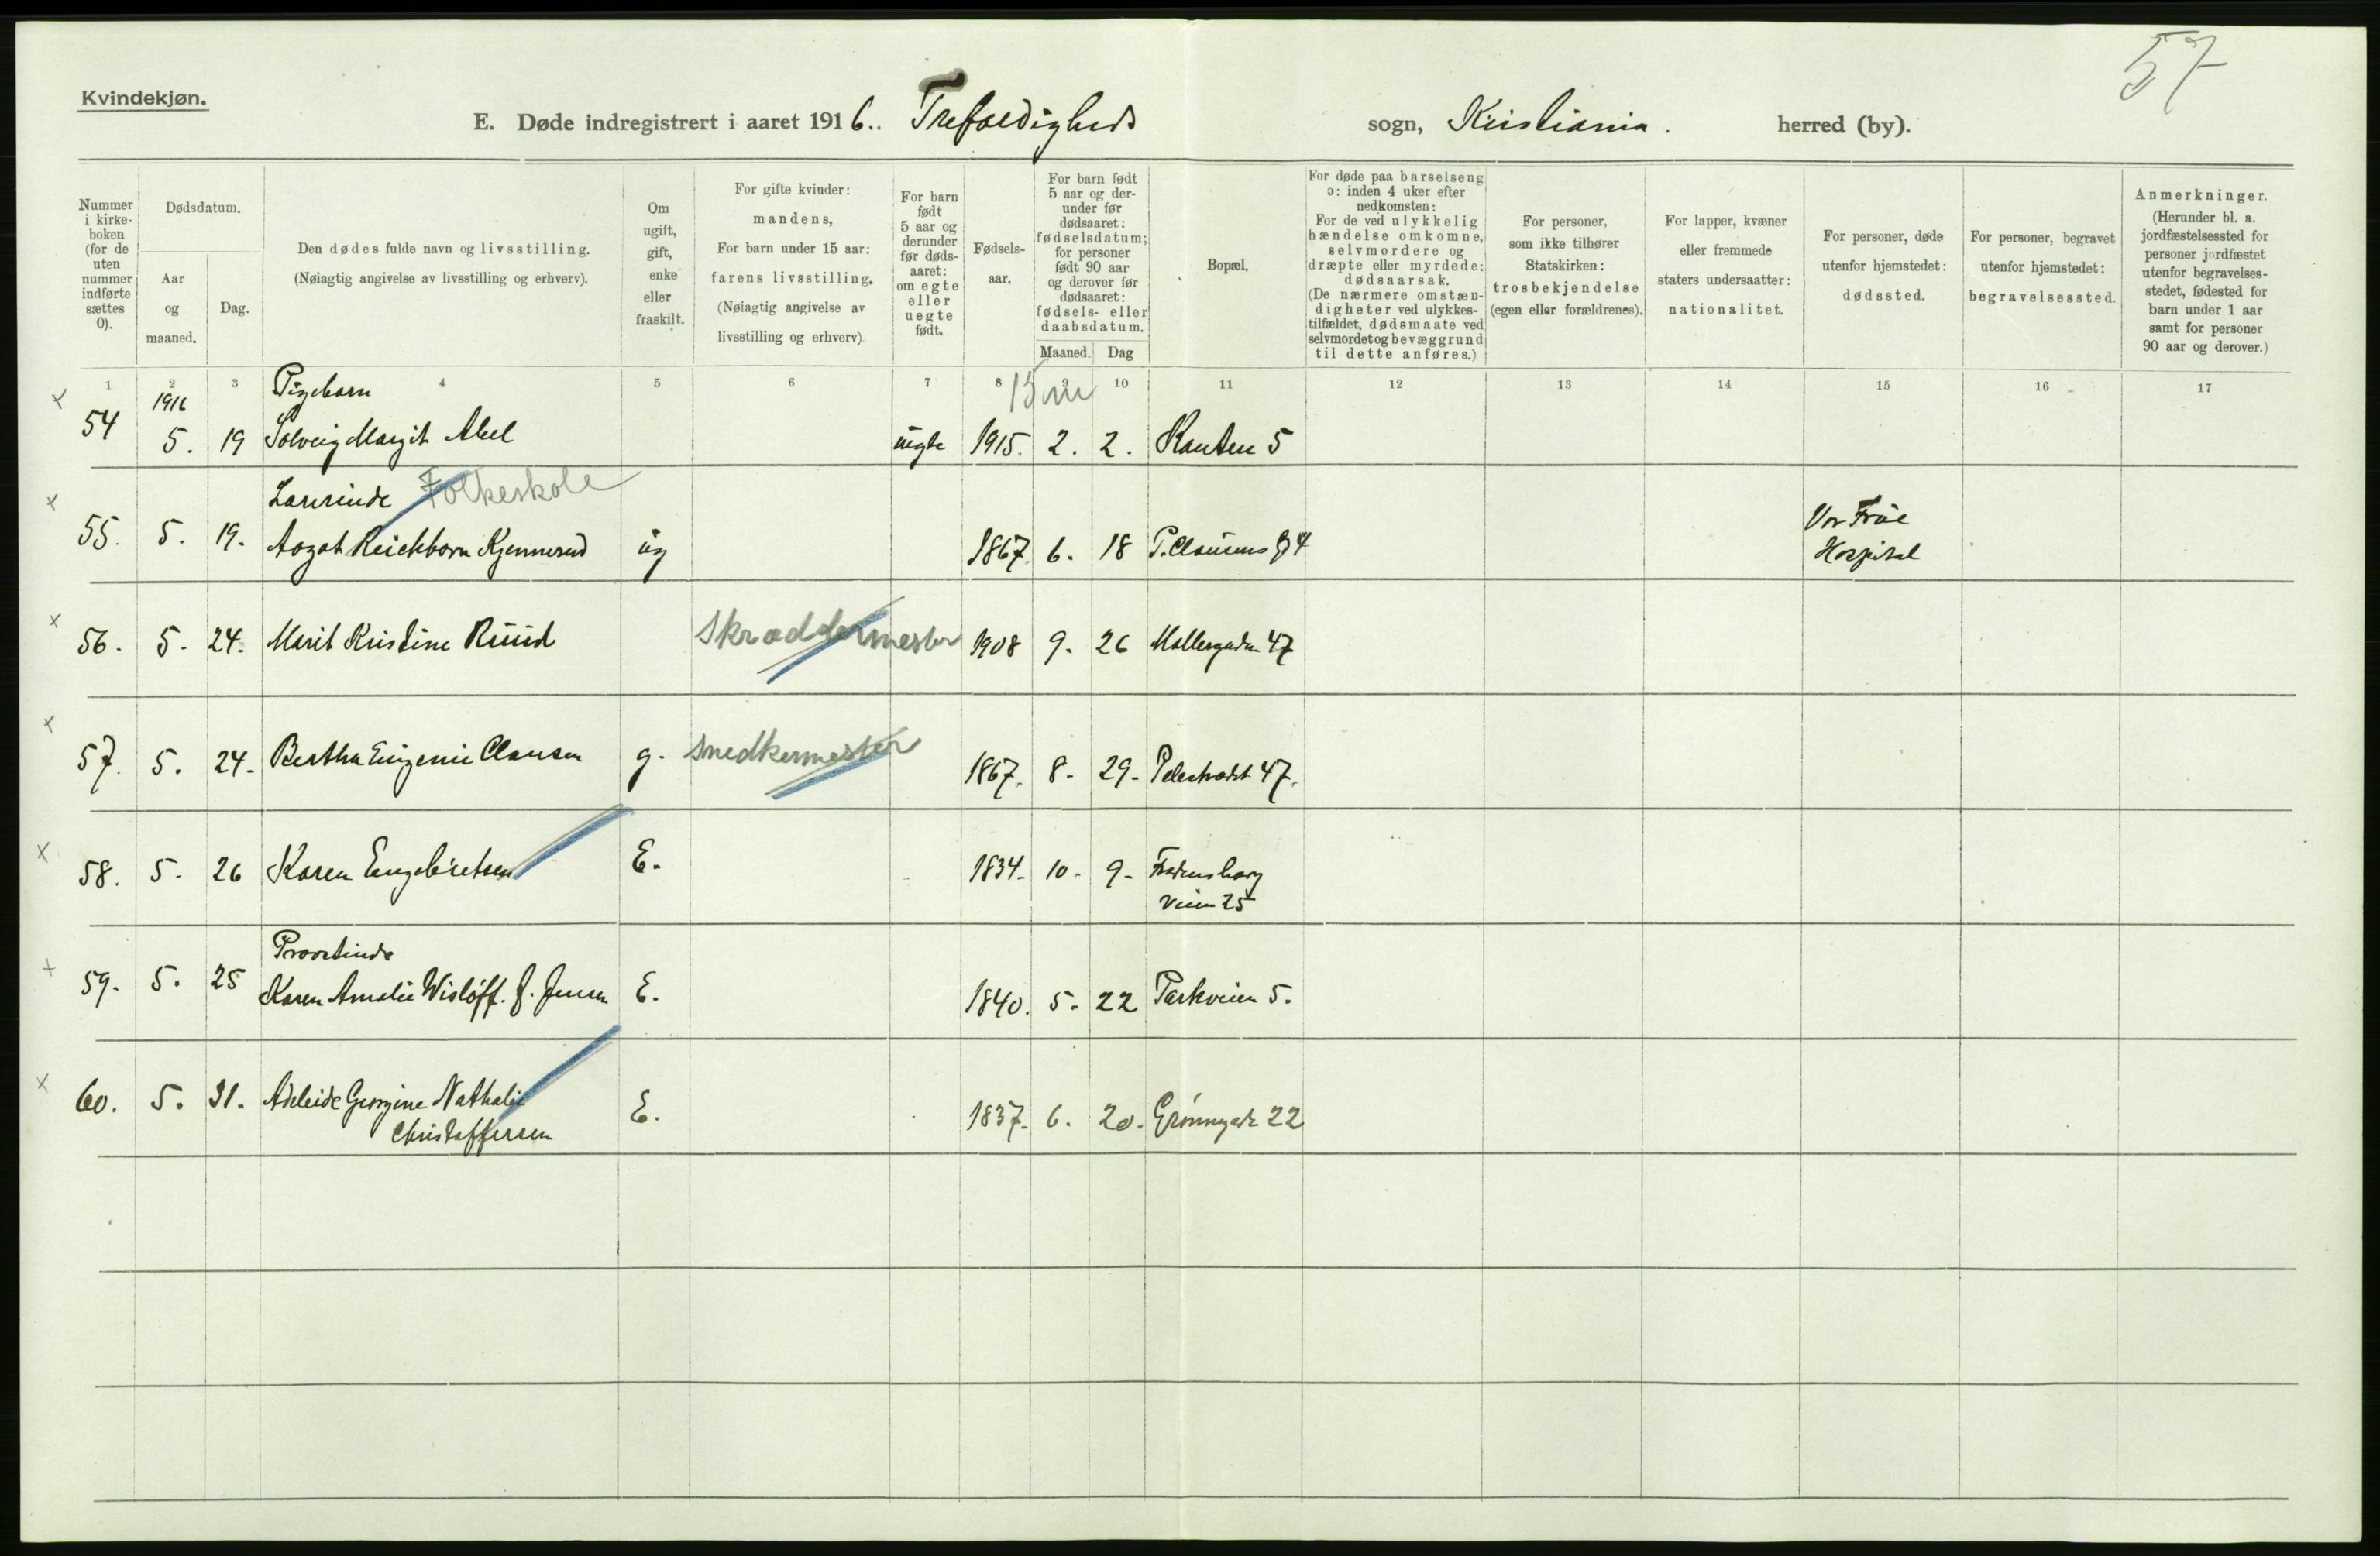 57
Kvindekjøn.
E. Døde indregistrert i aaret 1916.. Trefoldigheds sogn, Kristiania. herred (by).
Nummer i kirkeboken (for de uten nummer indførte sættes 0).
Dødsdatum.
Aar og maaned.
Dag.
Den dødes fulde navn og livsstilling.
(Nøiagtig angivelse av livsstilling og erhverv).
Om ugift, gift, enke eller fraskilt.
For gifte kvinder: mandens,
For barn under 15 aar: farens livsstilling.
(Nøiagtig angivelse av livsstilling og erhverv)
For barn født 5 aar og derunder før dødsaaret: om egte eller uegte født.
Fødselsaar.
For barn født 5 aar og derunder før dødsaaret: fødselsdatum; for personer født 90 aar og derover før dødsaaret: fødsels- eller daabsdatum.
Maaned. Dag
Bopæl.
For døde paa barselseng ɔ: inden 4 uker efter nedkomsten:
For de ved ulykkelig hændelse omkomne, selvmordere og dræpte eller myrdede: dødsaarsak.
(De nærmere omstændigheter ved ulykkestilfældet, dødsmaate ved selvmordet og bevæggrund til dette anføres.)
For personer, som ikke tilhører Statskirken: trosbekjendelse (egen eller forældrenes).
For lapper, kvæner eller fremmede staters undersaatter: nationalitet.
For personer, døde utenfor hjemstedet: dødssted.
For personer, begravet utenfor hjemstedet: begravelsessted.
Anmerkninger.
(Herunder bl. a. jordfæstelsessted for personer jordfæstet utenfor begravelsesstedet, fødested for barn under 1 aar samt for personer 90 aar og derover.)
1 2 3 4 5 6 7 8 9 10 11 12 13 14 15 16 17
1916 Pigebarn 15 m
x 54 5. 19 Solveig Margit Abel uegte 1915. 2. 2. Ranten 5
Lærerinde Folkeskole
x 55. 5. 19. Aagot Reichborn Kjennerud ug 1867. 6. 18 P. Clausens g 4 Vor Frue Hospital
x 56. 5. 24. Marit Kristine Ruud Skræddermester 1908 9. 26 Møllergaden 47
x 57. 5. 24. Bertha Eugenie Clausen g. Snedkermester 1867. 8. 29. Pilestrædet 47.
x 58. 5. 26 Karen Engebretsen E. 1834. 10. 9. Fredensborg
veien 25
Provstinde
+ 59. 5. 25 Karen Amalie Wisløff. f. Jensen E. 1840. 5. 22 Parkveien 5.
x 60. 5. 31. Adeleide Georgine Nathalie
Christoffersen E. 1837. 6. 20. Grønnegade 22